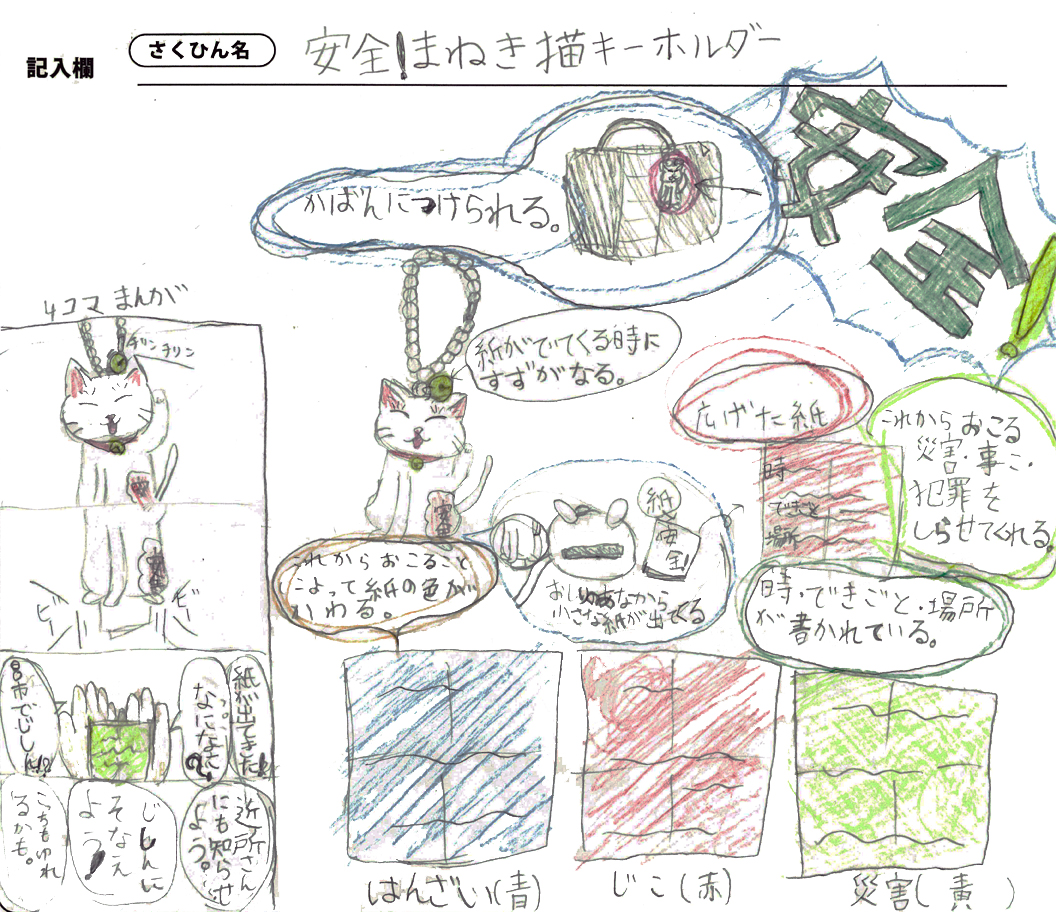 記入欄
さくひん名
安全!まねき描キーホルダー
安全
かばんにつけられる。
4コマまんが
チリンチリン
紙がでてくる時に
すずがなる。
広げた紙
これからおこる
災害・事こ・
犯罪を
しらせてくれる。
時
できごと
場所
紙
安全!
おしりのあなから
小さな紙が出てくる
これからおこること
によって紙の色が
かわる。
時・できごと・場所
が書かれている。
ビーッ
ビーッ
紙が出てきた!
なになにって。
〇市でじしん!?
近所さん
にも知らせ
よう。
じしんに
そなえ
よう!
こちもゆれ
るかも。
はんざい(青)
じこ(赤)
災害(黄)